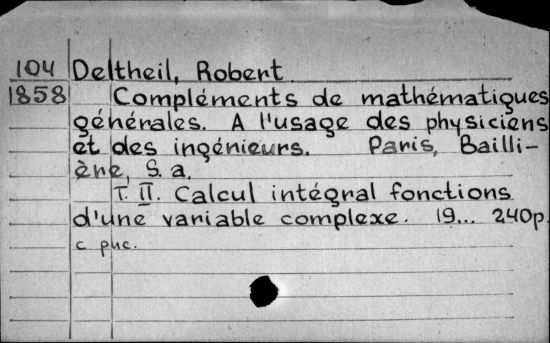 104 Deltheil, Robert
1858 Compléments de mathématiques
générales. A l'usage des physiciens
et des ingénieurs. Paris, Bailli-
ène, S. a.
T. II. Calcul intégral fonctions
d'une variable complexe. 19... 240p.
с рис.